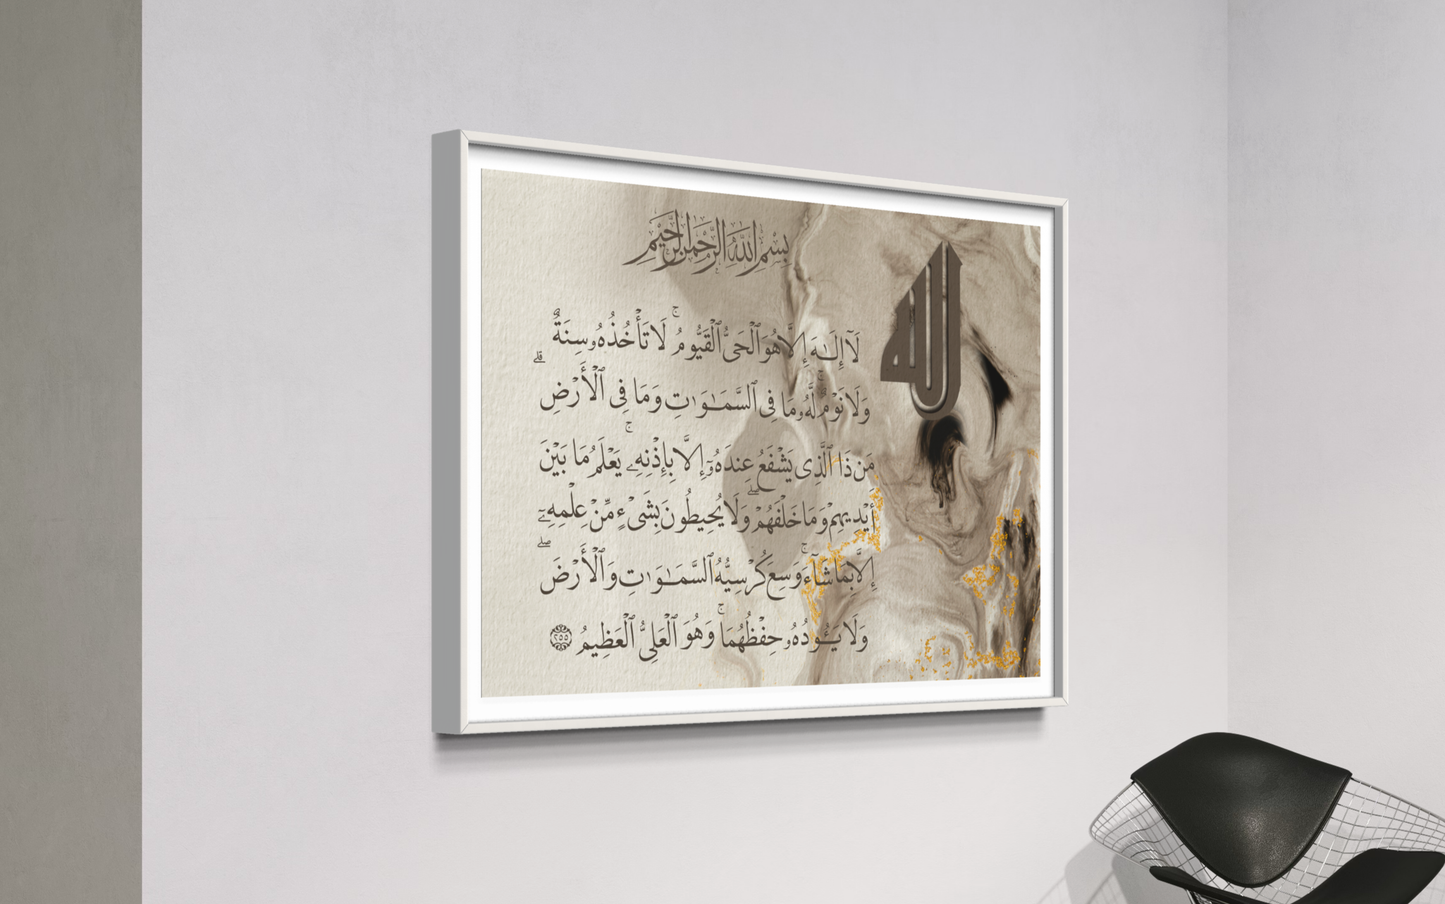 بِسْمِ اللَّهِ الرَّحْمَٰنِ الرَّحِيمِ
الله
لَآ إِلَـٰهَ إِلَّا هُوَ ٱلْحَىُّ ٱلْقَيُّومُ ۚ لَا تَأْخُذُهُۥ سِنَةٌ
وَلَا نَوْمٌ ۚ لَّهُۥ مَا فِى ٱلسَّمَـٰوَٰتِ وَمَا فِى ٱلْأَرْضِ ۗ
مَن ذَا ٱلَّذِى يَشْفَعُ عِندَهُۥٓ إِلَّا بِإِذْنِهِۦ ۚ يَعْلَمُ مَا بَيْنَ
أَيْدِيهِمْ وَمَا خَلْفَهُمْ ۖ وَلَا يُحِيطُونَ بِشَىْءٍ مِّنْ عِلْمِهِۦٓ
إِلَّا بِمَا شَآءَ ۚ وَسِعَ كُرْسِيُّهُ ٱلسَّمَـٰوَٰتِ وَٱلْأَرْضَ ۖ
وَلَا يَـُٔودُهُۥ حِفْظُهُمَا ۚ وَهُوَ ٱلْعَلِىُّ ٱلْعَظِيمُ ٢٥٥